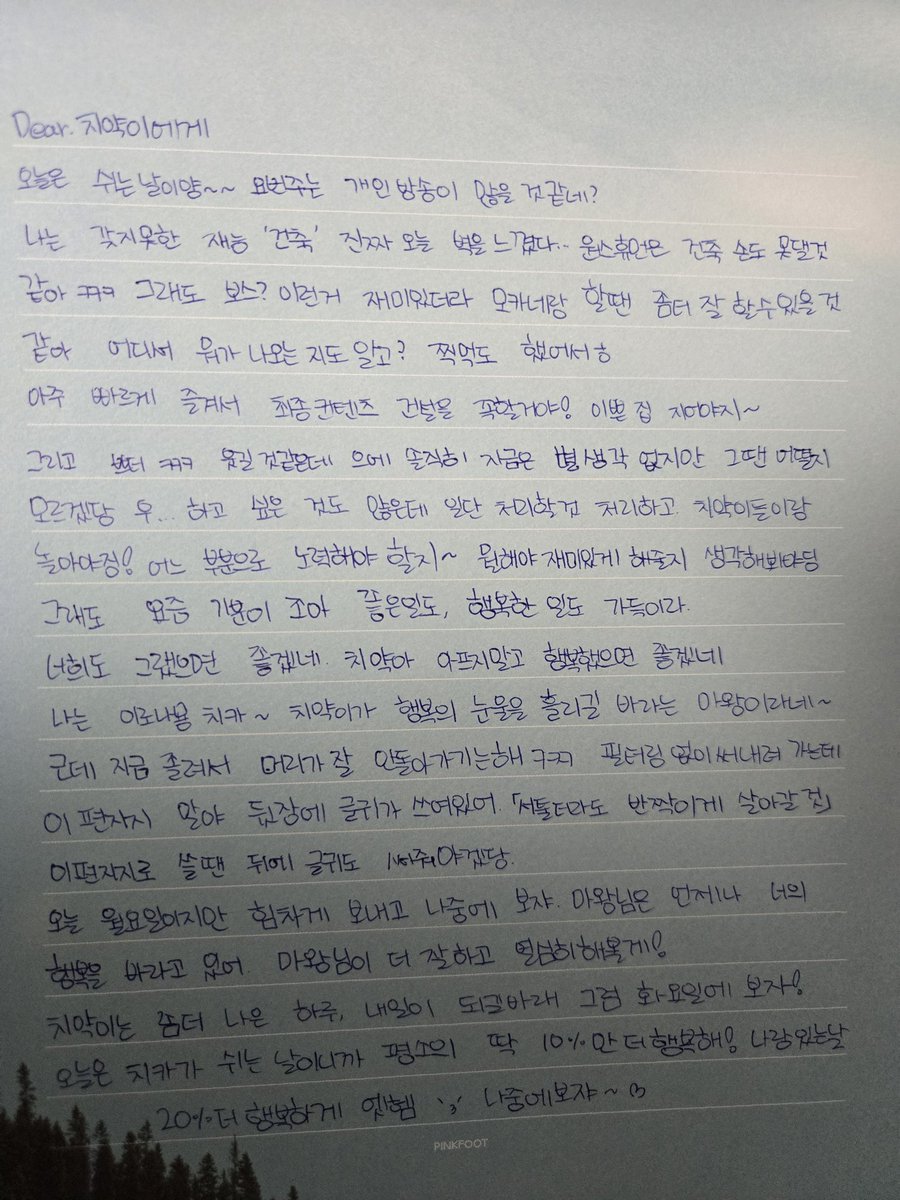 Dear. 치약이에게
오늘은 쉬는 날이양~~ 요번주는 개인 방송이 많을 것 같네?
나는 갖지못한 재능 '건축' 진짜 오늘 벽을 느꼈다.. 원스휴먼은 건축 손도 못댈것
같아 ㅋㅋㅋ 그래도 보스? 이런거 재미있더라 모카네랑 할땐 좀더 잘 할수있을 것
같아 어디서 뭐가 나오는 지도 알고? 찍먹도 했어서ㅎ
아주 빠르게 즐겨서 최종컨텐츠 건설을 꼭할거야! 이쁜 집 지어야지~
그리고 ㅋㅋㅋ 웃길 것같은데 으에 솔직히 지금은 별 생각 없지만 그땐 어떨지
모르겠당 우... 하고 싶은 것도 많은데 일단 처리할건 처리하고 치약이들이랑
놀아야징! 어느 부분으로 노력해야 할지~ 뭘해야 재미있게 해줄지 생각해봐야딩
그래도 요즘 기분이 조아 좋은일도, 행복한 일도 가득이라.
너희도 그랬으면 좋겠네. 치약아 아프지말고 행복했으면 좋겠네
나는 이로나용 치카~ 치약이가 행복의 눈물을 흘리길 바라는 마왕이라네~
근데 지금 졸려서 머리가 잘 안돌아가기는해 ㅋㅋㅋ 필터링 없이 써내려 가는데
이 편자지 말야 뒷장에 글귀가 쓰여있어. 「서툴더라도 반짝이게 살아갈 것」
이편지지로 쓸땐 뒤에 글귀도 써줘야겠당.
오늘 월요일이지만 힘차게 보내고 나중에 보쟈. 마왕님은 언제나 너의
행복을 바라고 있어 마왕님이 더 잘하고 열심히해볼게!
치약이는 좀더 나은 하루, 내일이 되길바래 그럼 화요일에 보자!
오늘은 치카가 쉬는 날이니까 평소의 딱 10%만 더 행복해! 나랑있는날
20%더 행복하게 나중에보쟈~
PINKFOOT